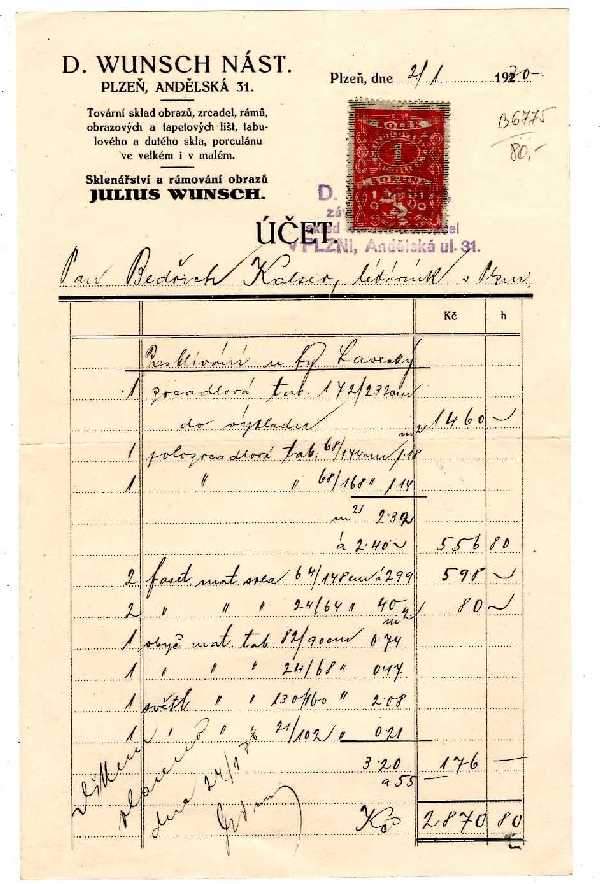 D. WUNSCH NÁST.
PLZEŇ, ANDĚLSKÁ 31.
Tovární sklad obrazů, zrcadel, rámů,
obrazových a tapetových lišt, tabu-
lového a dutého skla, porculánu
ve velkém i v malém.
Sklenářství a rámování obrazů
JULIUS WUNSCH.
Plzeň, dne 2/1 1920-
B6775
80,-
KOLEK
1
KORUNA
D.
PLZNI, Andělská ul. 31.
ÚČET
Pan Bedřich v
Kč h
1 zrcadlová tab. 172/232cm
do výkladu 1460 ~
1 polozrcadlová tab. 68/174cm 1.18
1 " " 68/168 " 1.14
m² 2.32
á 2.40 ~ 556 80
2 mat skla 64/148cm á 299 598 ~
2 " " " 24/64 " 40 80 ~
1 obyč mat. tab. 82/90cm 0.74
1 " " " 24/68 " 0.17
1 světl " " 130/160 " 2.08
1 " " " 21/102 " 0.21
3.20 176 —
á 55
dne 24/1
Kč 2870 80